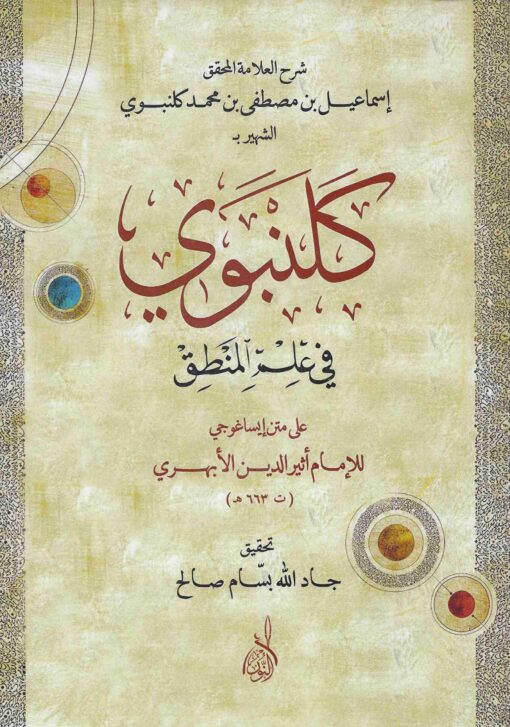 شرح العلامة المحقق
إسماعيل بن مصطفى بن محمد كلنبوي
الشهير بـ
كَلَنْبَوِي
في عِلْمِ المَنْطِقْ
على متن إيساغوجي
للإمام أثير الدين الأبهري
(ت ٦٦٣ هـ)
تحقيق
جاد الله بسّام صالح
النور